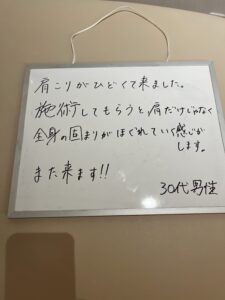 肩こりがひどくて来ました。
施術してもらうと、肩だけじゃなく
全身の固まりがほぐれていく感じが
します。
また来ます!!
30代男性